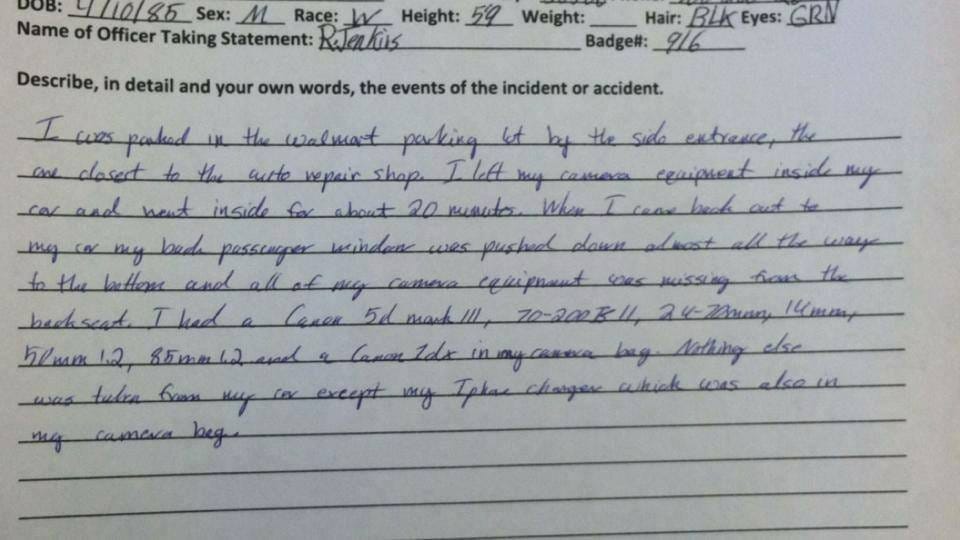 DOB: 4/10/85 Sex: M Race: W Height: 59 Weight: ____ Hair: BLK Eyes: GRN
Name of Officer Taking Statement: R.Jenkins Badge#: 916
Describe, in detail and your own words, the events of the incident or accident.
I was parked in the walmart parking lot by the side entrance, the
one closest to the auto repair shop. I left my camera equipment inside my
car and went inside for about 20 minutes. When I came back out to
my car my back passenger window was pushed down almost all the way
to the bottom and all of my camera equipment was missing from the
backseat. I had a Canon 5d mark III, 70-200 II, 24-70mm, 14mm,
50mm 1.2, 85mm 1.2 and a Canon 1dx in my camera bag. Nothing else
was taken from my car except my Iphone charger which was also in
my camera bag.